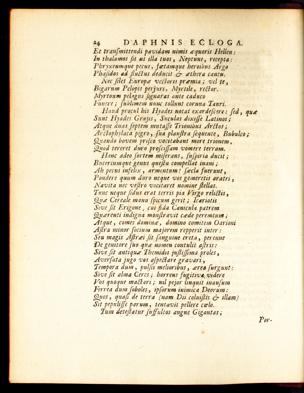 24 DAPHNIS ECLOGA.
Et transmittendi pavidam nimis æquoris Hellen:
In thalamos sit ut illa tuos, Neptune, recepta:
Phryxeumque pecus, fætamque heroibus Argo
Phasidos ad fluctus deducit & æthera centu.
Nec silet Europæ vectores præmia; vel te,
Bigarum Pelopis perjure, Myrtile, rector.
Myrtoum pelagus signaras ante caduco
Funere; sublimem nunc tollunt cornua Tauri.
Haud procul his Hyadas notat exardescere: sed, quæ
Sunt Hyades Grajis, Suculas dixisse Latinos;
Atque duas septem mutasse Trionibus Arctos;
Arctophylaca pigro, sua plaustra sequente, Bobulco;
Quando bovem prisci vocitabant more trionem,
Quod tereret duro proscissam vomere terram.
Hunc adeo sortem miserans, injuria ducit;
Buceriumque genus questu compellat inani;
Ah pecus infelix, armentum! sæcla fuerunt,
Pondere quum duro neque vos gemeretis arator,
Navita nec vestro vocitaret nomine stellas.
Tunc neque sidus erat terris pia Virgo relictis,
Quæ Cereale manu spicum gerit; Icariotis
Sive sit Erigone, cui fida Canicula patrem
Quærenti indigna monstravit cæde peremtum;
Atque, comes dominæ, domino comitem Oarioni
Astra minor socium majorem repperit inter:
Seu magis Astræi sit sanguine creta, perenne
De genitore suo quæ nomen contulit astris:
Sive sit antiquæ Themidos justissima proles,
Aversata jugo vos aspectare gravari,
Tempora dum, pulsis melioribus, ærea surgunt:
Sive sit alma Ceres; horrens fugitiva videre
Vos quoque mactari; nil pejor linquit inausum
Ferrea dum soboles, ipsorum inimica Deorum:
Quos, quasi de terra (nam Dii coluistis & illam)
Sit pepulisse parum, tentavit pellere cælo.
Tum detestatur suffultos angue Gigantas;
Por-